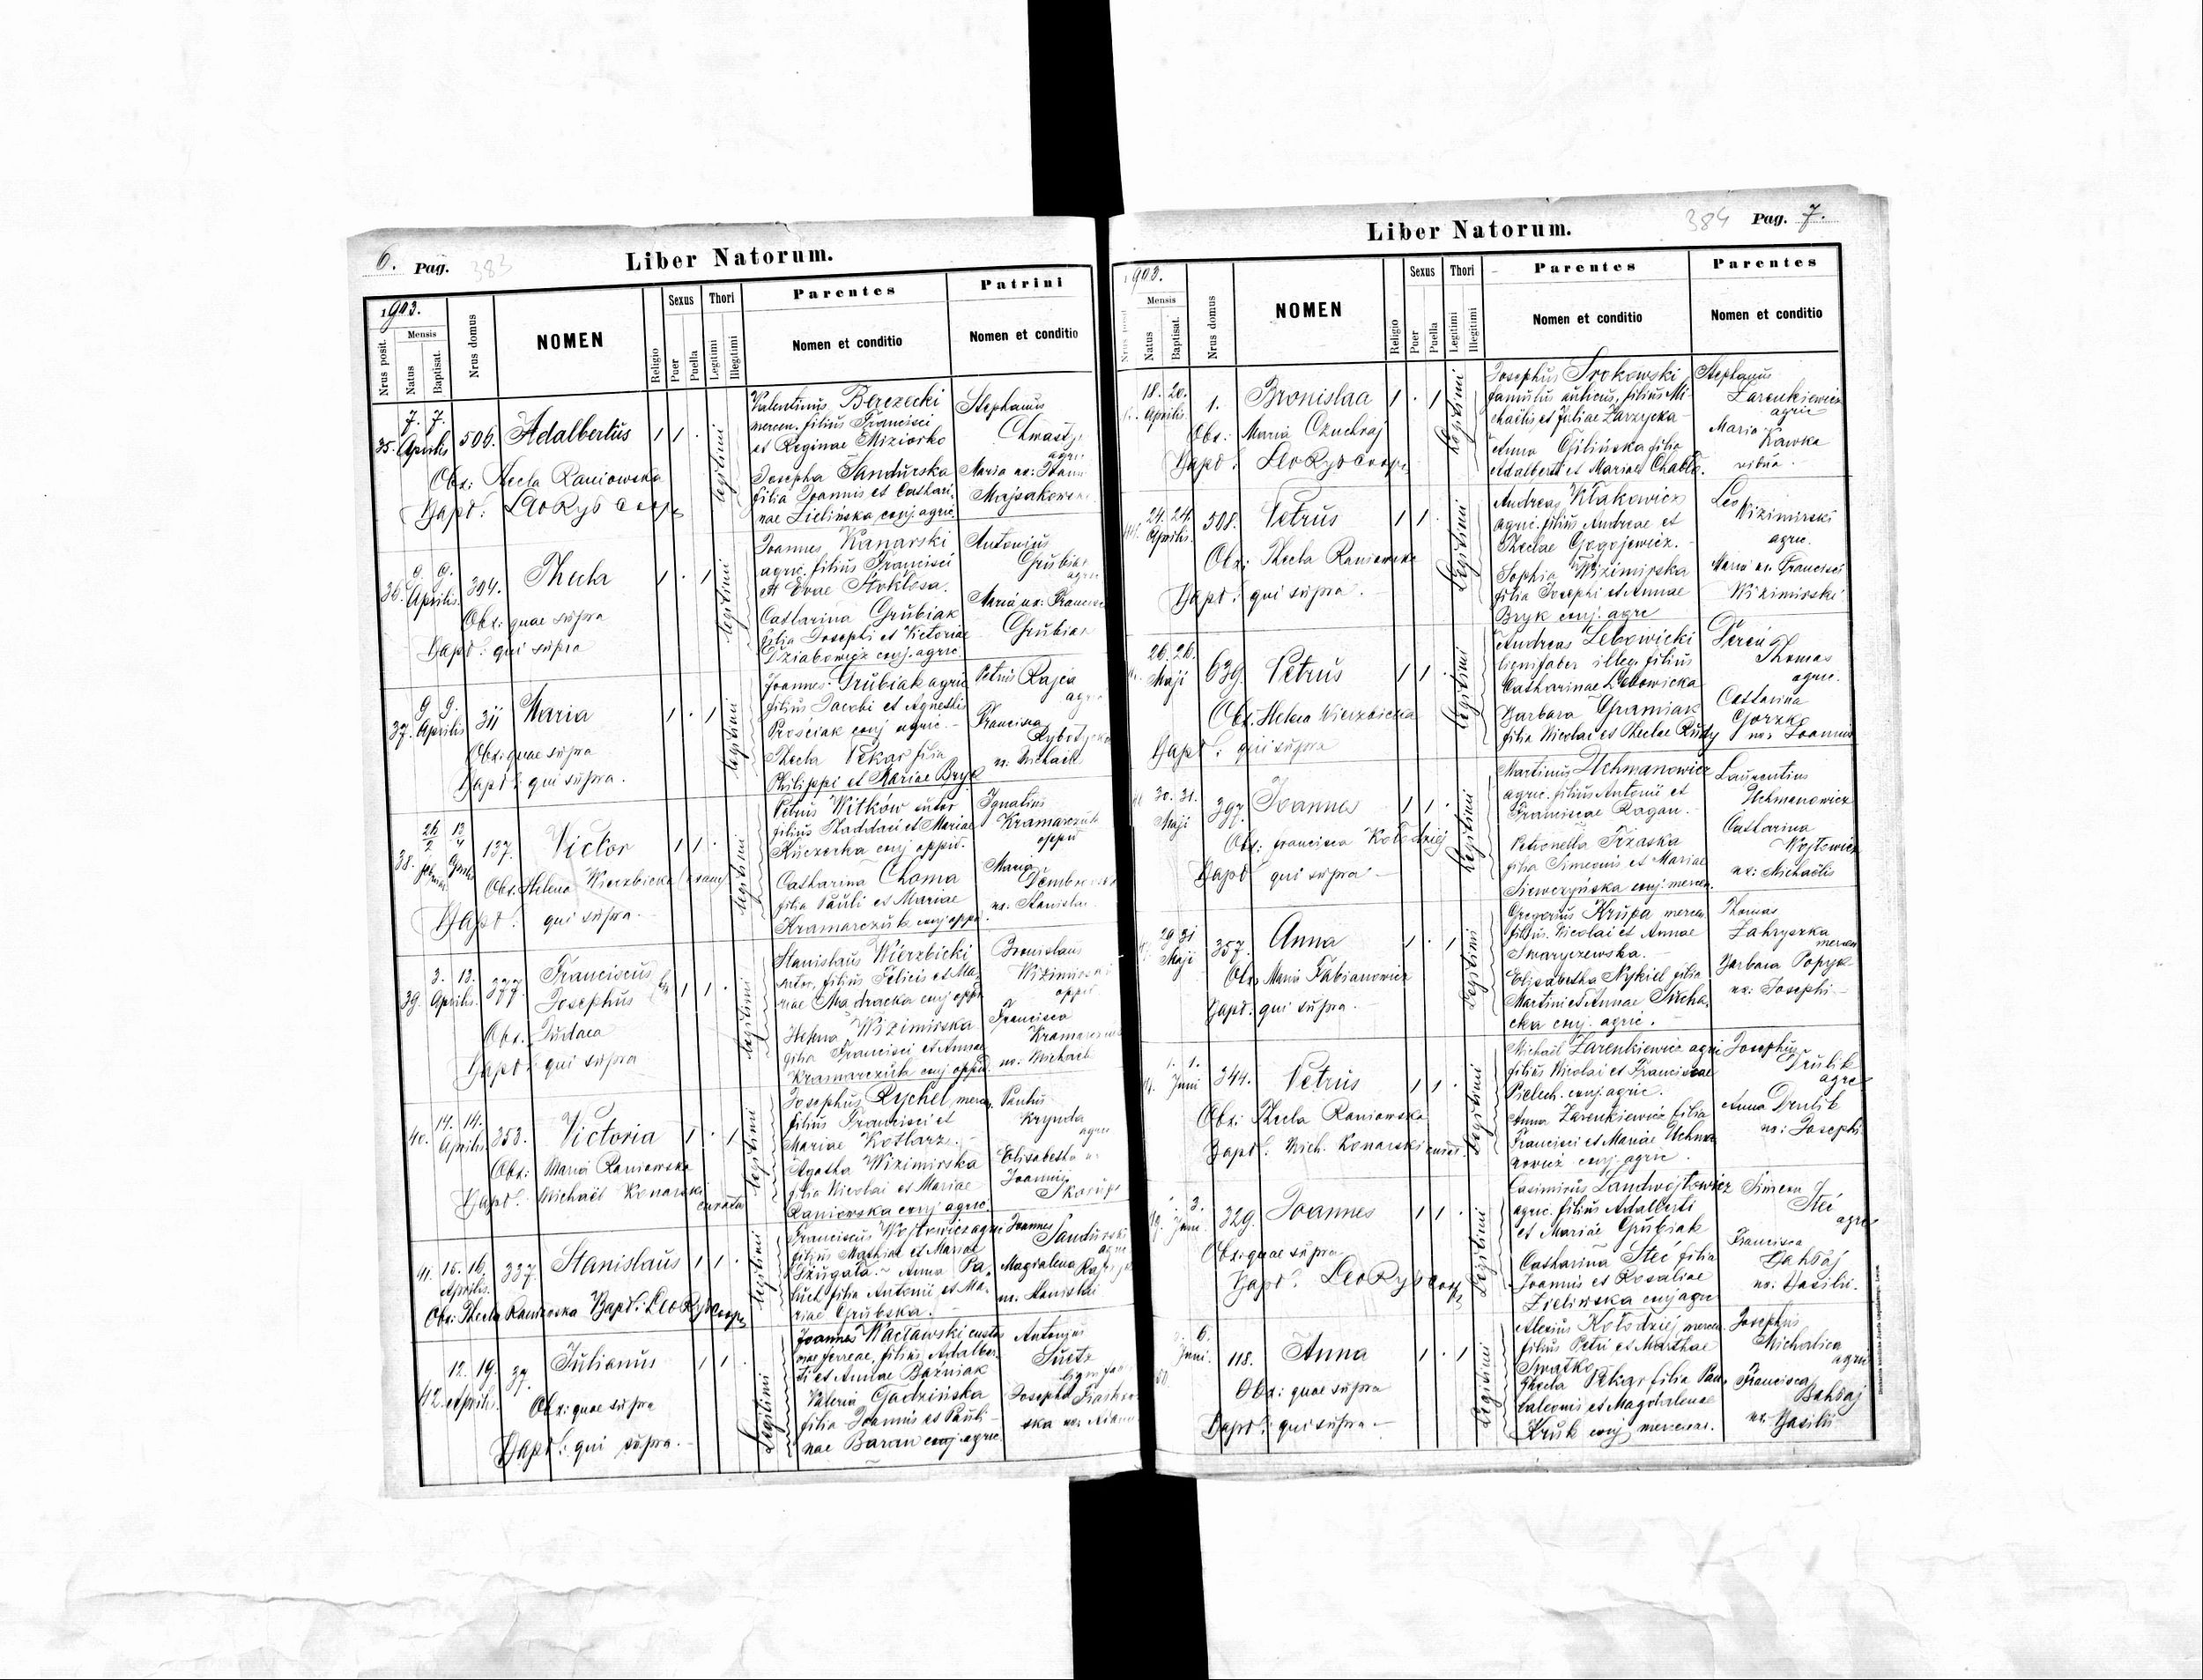 6. Pag. 383
Liber Natorum.
1903.
Nrus posit.
Mensis
Natus
Baptisat.
Nrus domus
NOMEN
Religio
Sexus
Puer
Puella
Thori
Legitimi
Illegitimi
Parentes
Nomen et conditio
Patrini
Nomen et conditio
35. 7. 7. Aprilis 506. Adalbertus 1 1 .
Obs: Thecla Raniowska
Bapt: Leo Ryb coop
legitimi
Valentinus Berezecki
mercen. filius Francisci
et Reginae Miziorko
Josepha Sandurska
filia Joannis et Cathari-
nae Zielińska conj. agric.
Stephanus
agric
Maria ux: Joann
Majsakows
36. 9. 9. Aprilis. 394. Thecla 1 . 1
Obs: quae supra
Bapt: qui supra
legitimi
Joannes Kanarski
agric. filius Francisci
et Evae Stoklosa.
Catharina Grubiak
filia Josephi et Victoriae
Dziabowicz conj. agric.
Antonius
Grubiak
agric
Maria ux: Francisc
Grubiak
37. 9. 9. Aprilis 311 Maria 1 . 1
Obs: quae supra
Bapt: qui supra.
legitimi
Joannes Grubiak agric
filius Jacobi et Agnetis
Prościak conj agric. -
Thecla Pekar filia
Philippi et Mariae Bryk
Petrus Rajca
Francisca
ux: Michaeli
38. 26/2 Februar 12/4 137. Victor 1 1 .
Obs. Helena Wierzbicka
Bapt: qui supra.
legitimi
Petrus Witków sutor
filius Thaddaei et Mariae
Kuczerka conj oppid.
Catharina Choma
filia Pauli et Mariae
Kramarczuk conj oppid.
Ignatius
Kramarczuk
oppid
Maria
ux. Stanislai
39. 3. 12. Aprilis. 377. Franciscus
Josephus 1 1 .
Obs. Judaea
Bapt: qui supra
legitimi
Stanislaus Wierzbicki
sutor, filius Felicis et Ma-
riae Madracka conj oppid
Helena Wizimirska
filia Francisci et Annae
Kramarczuk conj oppid.
Bronislaus
Wizimirski
oppid
Francisca
ux. Michael
40. 14. 14. Aprilis 353. Victoria 1 . 1
Obs: Maria Raniowska
Bapt: Michael Konarski curatus
legitimi
Josephus Rychel, mercen.
filius Francisci et
Mariae Kotlarz. -
Agatha Wizimirska
filia Nicolai et Mariae
Raniowska conj agric.
Paulus
Krynda
agric
Elisabetha
Joannis
41. 15. 16. Aprilis. 337. Stanislaus 1 1 .
Obs: Thecla Raniowska Bapt: Leo Ryb coop
legitimi
Franciscus Wojtowicz agric
filius Mathiae et Mariae
Szugala. - Anna Pa-
luch filia Antonii et Ma-
riae Grubska. -
Joannes
Sandurski
agric
Magdalena
ux. Stanislai
42. 12. 19. Aprilis. 37. Julianus 1 1 .
Obs: quae supra
Bapt: qui supra. -
Legitimi
Joannes Waclawski custos
viae ferreae, filius Adalber-
ti et Annae Baźniak
Valeria Gadzińska
filia Joannis et Pauli-
nae Baran conj. agric.
Antonius
Josepha
ska ux:
Liber Natorum.
384 Pag. 7.
1903.
Mensis
Natus
Baptisat.
Nrus domus
NOMEN
Religio
Sexus
Puer
Puella
Thori
Legitimi
Illegitimi
Parentes
Nomen et conditio
Parentes
Nomen et conditio
18. 20. Aprilis. 1. Bronislaa 1 . 1
Obs: Maria Czuchraj
Bapt: Leo Ryb coop.
Legitimi
Josephus Srokowski
famulus aulicus, filius Mi-
chaelis et Juliae Zarzycka -
Anna Gilińska filia
Adalberti et Mariae Chabło.
Stephanus
Zarenkiewicz
agric
Maria
Kawka
vidua.
24. 24. Aprilis. 508. Petrus 1 1 .
Obs: Thecla Raniowska
Bapt: qui supra. -
Legitimi
Andreas Klakowicz
agric. filius Andreae et
Theclae Gogojewicz. -
Sophia Wizimirska
filia Josephi et Annae
Bryk conj. agric
Leo
Wizimirski
agric.
Maria ux. Francisci
Wizimirski
26. 26. Maji 639. Petrus 1 1 .
Obs: Helena Wierzbicka
Bapt: qui supra
Legitimi
Andreas Lebowicki
lignifaber illeg. filius
Catharinae Lebowicka
Barbara Gramiak
filia Nicolai et Theclae Rudy
Thomas
agric.
Catharina
Gorzko
ux: Joannis
30. 31. Maji 397. Joannes 1 1 .
Obs: Francisca Kołodziej
Bapt qui supra -
Legitimi
Martinus Uchmanowicz
agric. filius Antonii et
Franciscae Ragan. -
Petronella Trzaska
filia Simeonis et Mariae
Siewczyńska conj. mercen.
Laurentius
Uchmanowicz
Catharina
Wojtowicz
ux: Michaelis
29 31 Maji 357. Anna 1 . 1
Obs Maria Fabianowicz
Bapt. qui supra. -
Legitimi
Gregorius Krupa mercen
filius. Nicolai et Annae
Swaryczewska. -
Elisabetha Nykiel filia
Martini et Annae Sucha-
cka conj. agric.
Thomas
Zahryszka
mercen
Barbara Popyk
ux: Josephi -
1. 1. Juni 344. Petrus 1 1 .
Obs: Thecla Raniowska
Bapt: Mich. Konarski curat.
Legitimi
Michael Zarenkiewicz agric
filius Nicolai et Franciscae
Pielech. conj. agric.
Anna Zarenkiewicz filia
Francisci et Mariae Uchma-
nowicz conj. agric.
Josephus
Drulik
agric
Anna Drulik
ux: Josephi
3. Juni. 329. Joannes 1 1 .
Obs: quae supra
Bapt: Leo Ryb coop
Legitimi
Casimirus Landwojtowicz
agric. filius Adalberti
et Mariae Grubiak
Catharina Steć filia
Joannis et Rosaliae
Zielińska conj agric
Simeon
Steć
agric
Francisca
Bahłaj
ux: Basilii.
6. Juni. 118. Anna 1 . 1
Obs: quae supra
Bapt: qui supra. -
Legitimi
Alexius Kołodziej mercen.
filius Petri et Marthae
Swatko
Thecla Pekar filia Pan-
taleonis et Magdalenae
Kruk conj mercenar.
Josephus
Michalica
agric
Francisca
Bahłaj
ux. Basilii